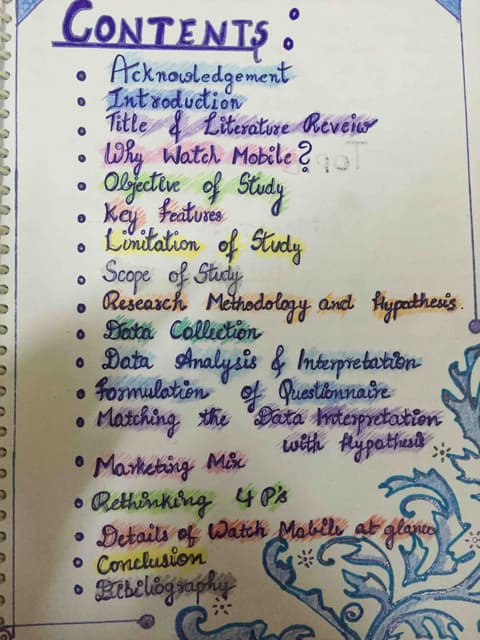 CONTENTS :
• Acknowledgement
• Introduction
• Title & Literature Reveiw
• Why Watch Mobile?
• Objective of Study
• Key Features
• Limitation of Study
• Scope of Study
• Research Methodology and Hypothesis.
• Data Collection
• Data Analysis & Interpretation
• Formulation of Questionnaire
• Matching the Data Interpretation
with Hypothesis
• Marketing Mix
• Rethinking 4 P's
• Details of Watch Mobile at glance
• Conclusion
• Bibiliography